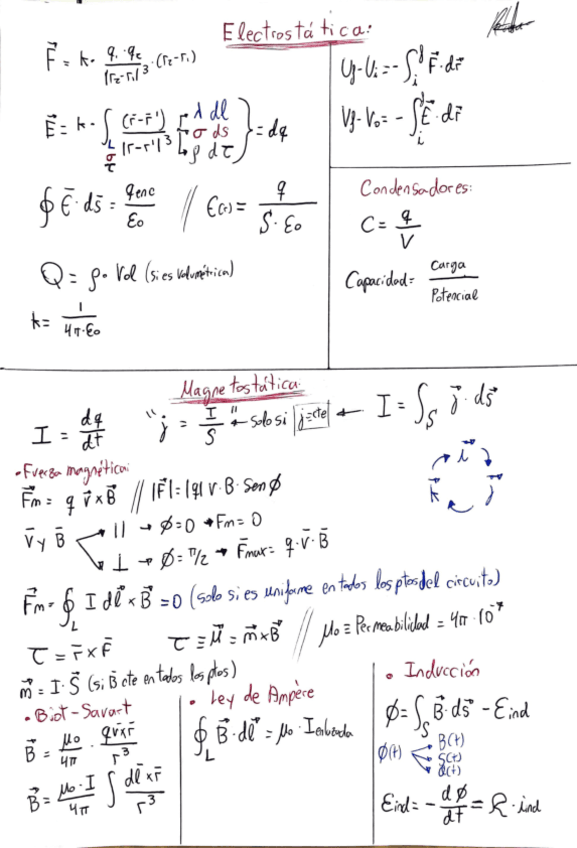 Electrostática:
F⃗ = k · q₁·q₂ / |r₂-r₁|³ · (r₂-r₁)
E⃗ = k · ∫ (r̄-r̄') / |r-r'|³ { λ dl, σ ds, ρ dτ } = dq
L σ τ
∮ Ē · ds̄ = qenc / ε₀ // E(r) = q / S · ε₀
Q = ρ · Vol (si es volumétrica)
k = 1 / 4π·ε₀
Uf - Ui = - ∫ᵢᶠ F⃗ · dr̄
Vf - V₀ = - ∫ᵢᶠ E⃗ · dr̄
Condensadores:
C = q / V
Capacidad = Carga / Potencial
Magnetostática
I = dq / dt "j = I / S" ← solo si j=cte ← I = ∫S j⃗ · ds⃗
• Fuerza magnética:
F⃗m = q v⃗ x B⃗ // |F⃗| = |q| v · B · Sen φ
i⃗ j⃗ k⃗
v̄ y B̄ → || → φ=0 → Fm = 0
→ ⊥ → φ = π/2 → F⃗max = q · v̄ · B̄
F⃗m = ∮L I dl⃗ x B⃗ = 0 (solo si es uniforme en todos los ptos del circuito)
τ = r̄ x F̄ τ ≡ μ⃗ = m⃗ x B⃗ // μ₀ ≡ Permeabilidad = 4π · 10⁻⁷
m⃗ = I · S⃗ (si B̄ cte en todos los ptos)
• Biot-Savart
B⃗ = μ₀ / 4π · q v̄ x r̄ / r³
B⃗ = μ₀ · I / 4π ∫ dl̄ x r̄ / r³
• Ley de Ampère
∮L B⃗ · dl⃗ = μ₀ · Ienlazada
• Inducción
φ = ∫S B⃗ · ds⃗ - εind
φ(t) ← B(t)
S(t)
α(t)
εind = - dφ / dt = R · iind